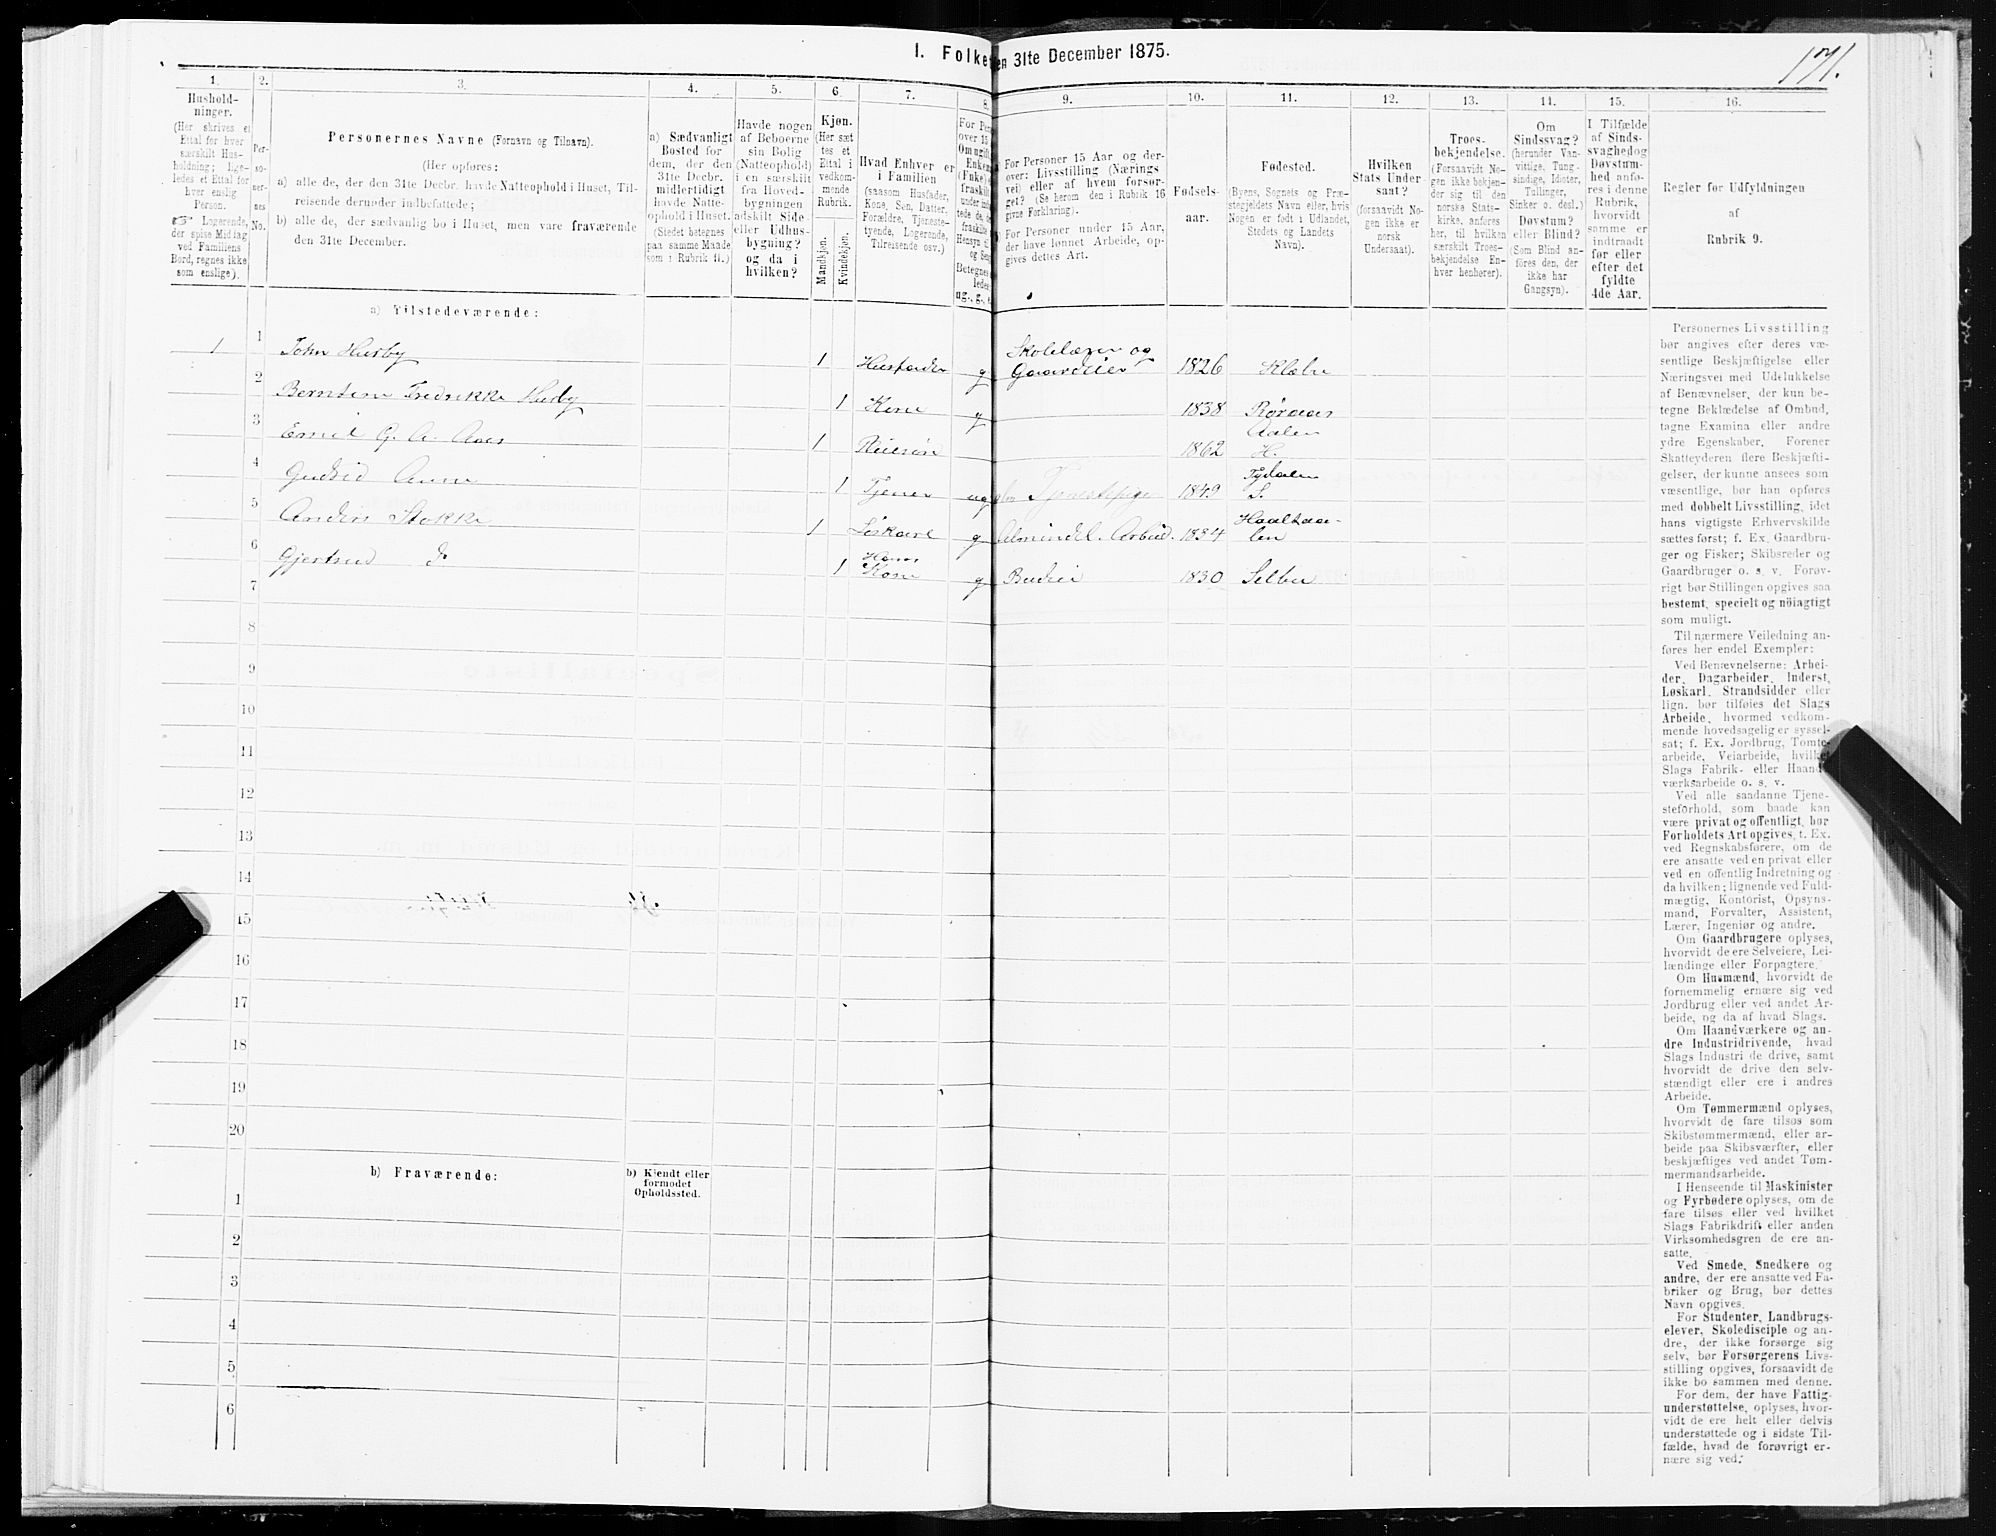 I. Folke
en 31te December 1875.
171.
1. 2. 3. 4. 5. 6. 7. 8. 9. 10. 11. 12. 13. 14. 15. 16.
Hushold-
ninger.
(Her skrives et
Ettal for hver
særskilt Hus-
holdning; lige-
ledes et Ettal for
hver enslig
Person.
☞ Logerende,
der spise Middag
ved Familiens
Bord, regnes ikke
som enslige).
Per-
so-
ner-
nes
No.
Personernes Navne (Fornavn og Tilnavn).
(Her opføres:
a) alle de, der den 31te Decbr. havde Natteophold i Huset, Til-
reisende derunder indbefattede;
b) alle de, der sædvanlig bo i Huset, men vare fraværende
den 31te December.
a) Sædvanligt
Bosted for
dem, der den
31te Decbr.
midlertidigt
havde Natte-
ophold i Huset.
(Stedet betegnes
paa samme Maade
som i Rubrik 11.)
Havde nogen
af Beboerne
sin Bolig
(Natteophold)
i en særskilt
fra Hoved-
bygningen
adskilt Side-
eller Udhus-
bygning?
og da i
hvilken?
Kjøn.
(Her sæt
tes et
Ettal i
vedkom-
mende
Rubrik.
Mandkjøn.
Kvindekjøn.
Hvad Enhver er
i Familien
(saasom Husfader,
Kone, Søn, Datter,
Forældre, Tjeneste-
tyende, Logerende,
Tilreisende osv.)
For Personer 15 Aar og der-
over: Livsstilling (Nærings
vei) eller af hvem forsør-
get? (Se herom den i Rubrik 16
givne Forklaring).
For Personer under 15 Aar,
der have lønnet Arbeide, op-
gives dettes Art.
Fødsels-
aar.
Fødested.
(Byens, Sognets og Præ-
stegjeldets Navn eller, hvis
Nogen er født i Udlandet,
Stedets og Landets
Navn).
Hvilken
Stats Under-
saat?
(forsaavidt No-
gen ikke er
norsk
Undersaat).
Troes-
bekjendelse.
(Forsaavidt No-
gen ikke bekjen-
der sig til den
norske Stats-
kirke, anføres
her, til hvilken
særskilt Troes-
bekjendelse En-
hver henhører).
Om
Sindssvag?
(herunder Van-
vittige, Tung-
sindige, Idioter,
Tullinger,
Sinker o. desl.)
Døvstum?
eller Blind?
(Som Blind an-
føres den, der
ikke har
Gangsyn).
I Tilfælde
af Sinds-
svaghed og
Døvstum-
hed anfø-
res i denne
Rubrik,
hvorvidt
samme er
indtraadt
før eller
efter det
fyldte
4de Aar.
Regler for Udfyldningen
af
Rubrik 9.
a) Tilstedeværende:
1 1 John Husby 1 Husfader g Skolelærer og
Gaardeier 1826 Klæbu
2 Berntine Fredrikke Husby 1 Kone g 1838 Røraas
3 Emil G. A. Aas 1 Pleiesøn 1862 Aalen
H.
4 Gudrid 1 Tjener ug Tjenestepige 1849 Tydalen
S.
5 Anders Stokke 1 Løskarl g Almindel. Arbeid. 1834 Haaltaa-
len
6 Gjertrud do 1 Hans
Kone g Budeie 1830 Selbu
7
8
9
10
11
12
13
14
15
16
17
18
19
20
b) Fraværende:
b) Kjendt eller
formodet
Opholdssted.
1
2
3
4
5
6
Personernes Livsstilling
bør angives efter deres væ-
sentlige Beskjæftigelse eller
Næringsvei med Udelukkelse
af Benævnelser, der kun be-
tegne Beklædelse af Ombud,
tagne Examina eller andre
ydre Egenskaber. Forener
Skatteyderen flere Beskjæfti-
gelser, der kunne ansees som
væsentlige, bør han opføres
med dobbelt Livsstilling, idet
hans vigtigste Erhvervskilde
sættes først; f. Ex. Gaardbru-
ger og Fisker; Skibsreder og
Gaardbruger o. s. v. Forøv-
rigt bør Stillingen opgives saa
bestemt, specielt og nöiagtigt
som muligt.
Til nærmere Veiledning an-
føres her endel Exempler:
Ved Benævnelserne: Arbei-
der, Dagarbeider, Inderst,
Løskarl, Strandsidder eller
lign. bør tilføies det Slags
Arbeide, hvormed vedkom-
mende hovedsagelig er syssel-
sat; f. Ex. Jordbrug, Tomte-
arbeide, Veiarbeide, hvilket
Slags Fabrik- eller Haand-
værksarbeide o. s. v.
Ved alle saadanne Tjene-
steforhold, som baade kan
være privat og offentligt, bør
Forholdets Art opgives, t. Ex.
ved Regnskabsførere, om de
ere ansatte ved en privat eller
ved en offentlig Indretning og
da hvilken; lignende ved Fuld-
mægtig, Kontorist, Opsyns-
mand, Forvalter, Assistent,
Lærer, Ingeniør og andre.
Om Gaardbrugere oplyses,
hvorvidt de ere Selveiere, Lei-
lændinge eller Forpagtere.
Om Husmænd, hvorvidt de
fornemmelig ernære sig ved
Jordbrug eller ved andet Ar-
beide, og da af hvad Slags.
Om Haandværkere og an-
dre Industridrivende, hvad
Slags Industri de drive, samt
hvorvidt de drive den selv-
stændigt eller ere i andres
Arbeide.
Om Tømmermænd oplyses,
hvorvidt de fare tilsøs som
Skibstømmermænd, eller ar-
beide paa Skibsværfter, eller
beskjæftiges ved andet Tøm-
mermandsarbeide.
I Henseende til Maskinister
og Fyrbødere oplyses, om de
fare tilsøs eller ved hvilket
Slags Fabrikdrift eller anden
Virksomhedsgren de ere an-
satte.
Ved Smede, Snedkere og
andre, der ere ansatte ved Fa-
briker og Brug, bør dettes
Navn opgives.
For Studenter, Landbrugs-
elever, Skoledisciple og an-
dre, der ikke forsørge sig
selv, bør Forsørgerens Livs-
stilling opgives, forsaavidt de
ikke bo sammen med denne.
For dem, der have Fattig-
understøttelse, oplyses, hvor-
vidt de ere helt eller delvis
understøttede og i sidste Til-
fælde, hvad de forøvrigt er-
nære sig ved.